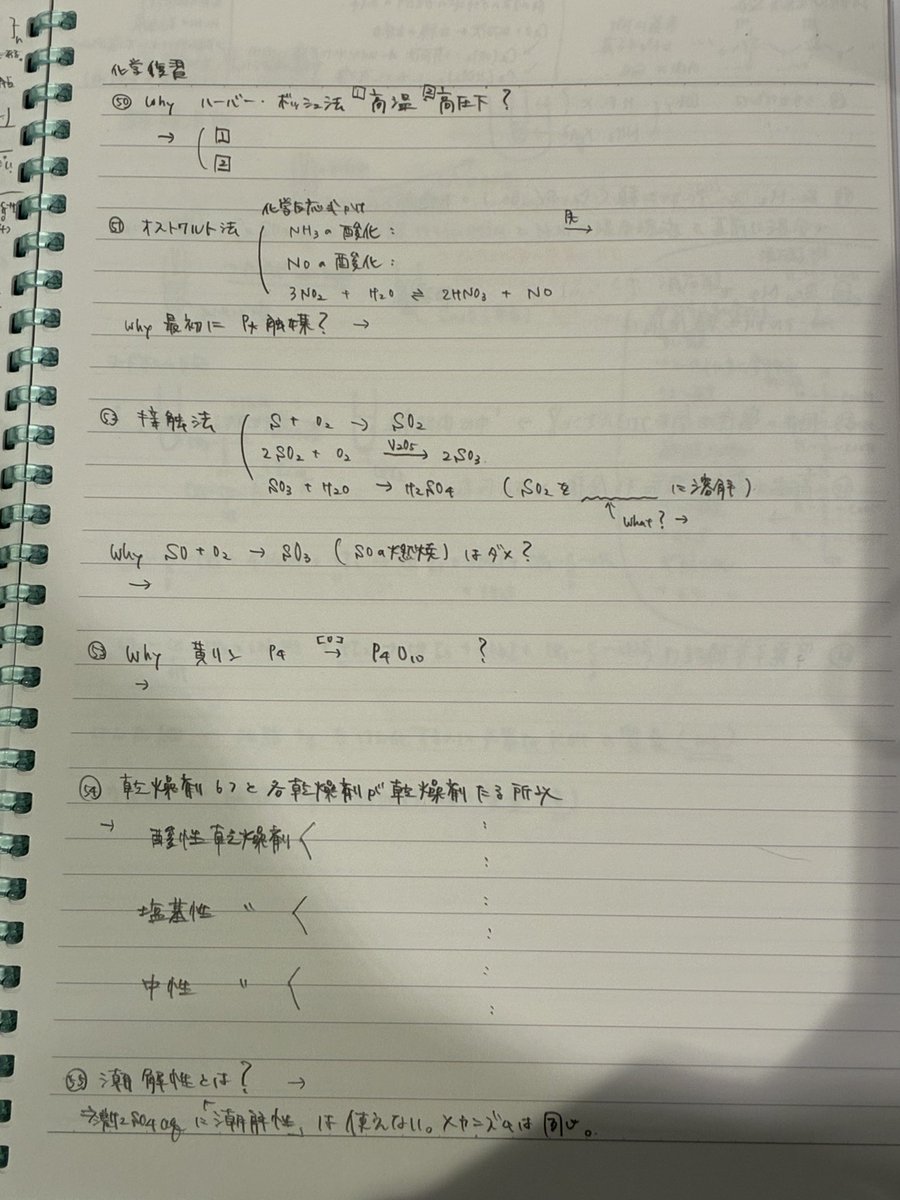 化学復習
㊿ Why ハーバー・ボッシュ法 1高温 2高圧下?
→ 1
2
化学反応式
51 オストワルト法 NH3の酸化: Pt→
NOの酸化:
3NO2 + H2O ⇌ 2HNO3 + NO
Why 最初に Pt 触媒? →
53 接触法 S + O2 → SO2
2SO2 + O2 V2O5→ 2SO3.
SO3 + H2O → H2SO4 (SO2を に溶解)
↑ What? →
Why SO + O2 → SO3 (SOの燃焼) はダメ?
→
53 Why 黄リン P4 [O]→ P4O10 ?
→
54 乾燥剤6つと各乾燥剤が乾燥剤たる所以
→ 酸性乾燥剤 :
:
塩基性 〃 :
:
中性 〃 :
:
55 潮解性とは? →
SO4 aq に「潮解性」は使えない。メカニズムは同じ。